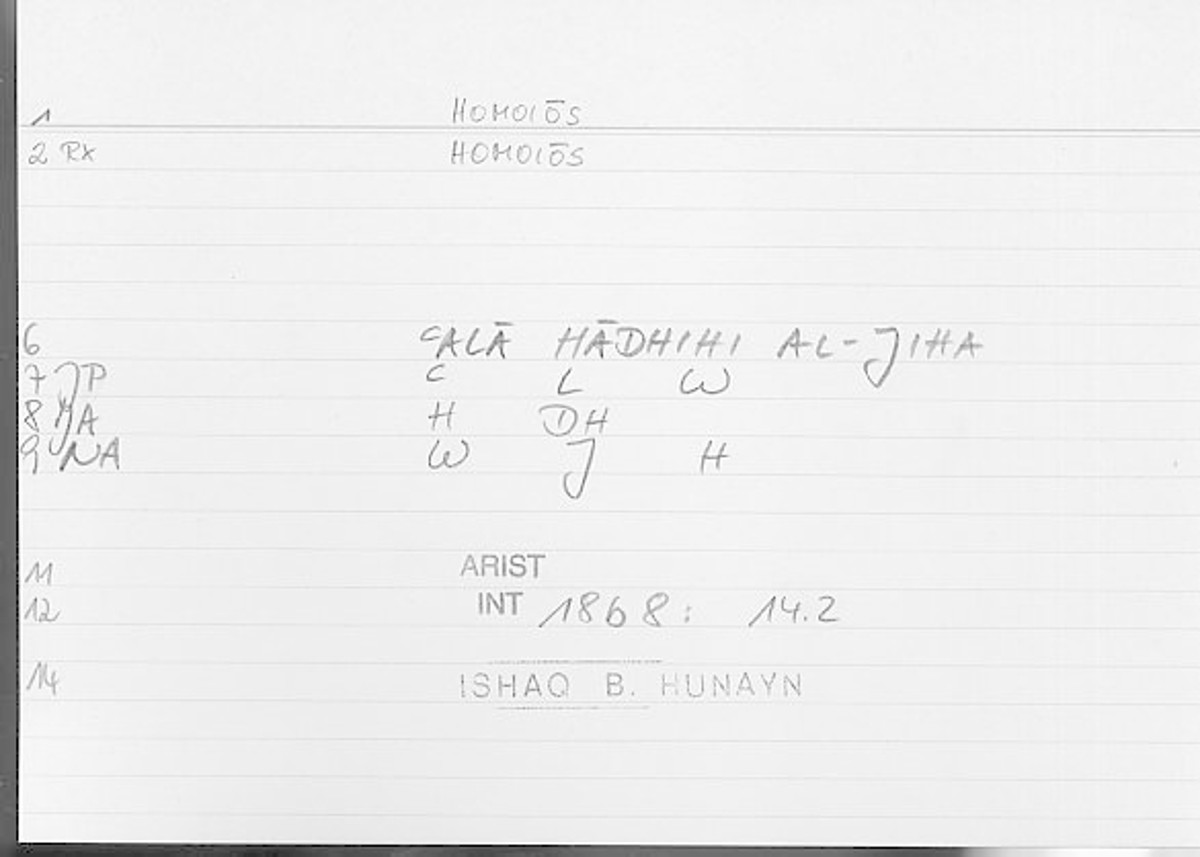 1 HOMOIŌS
2 RX HOMOIŌS
6 ᶜALĀ HĀDHIHI AL-JIHA
7 JP ᶜ L W
8 JA H DH
9 NA W J H
11 ARIST
12 INT 1868: 14.2
14 ISHAQ B. HUNAYN